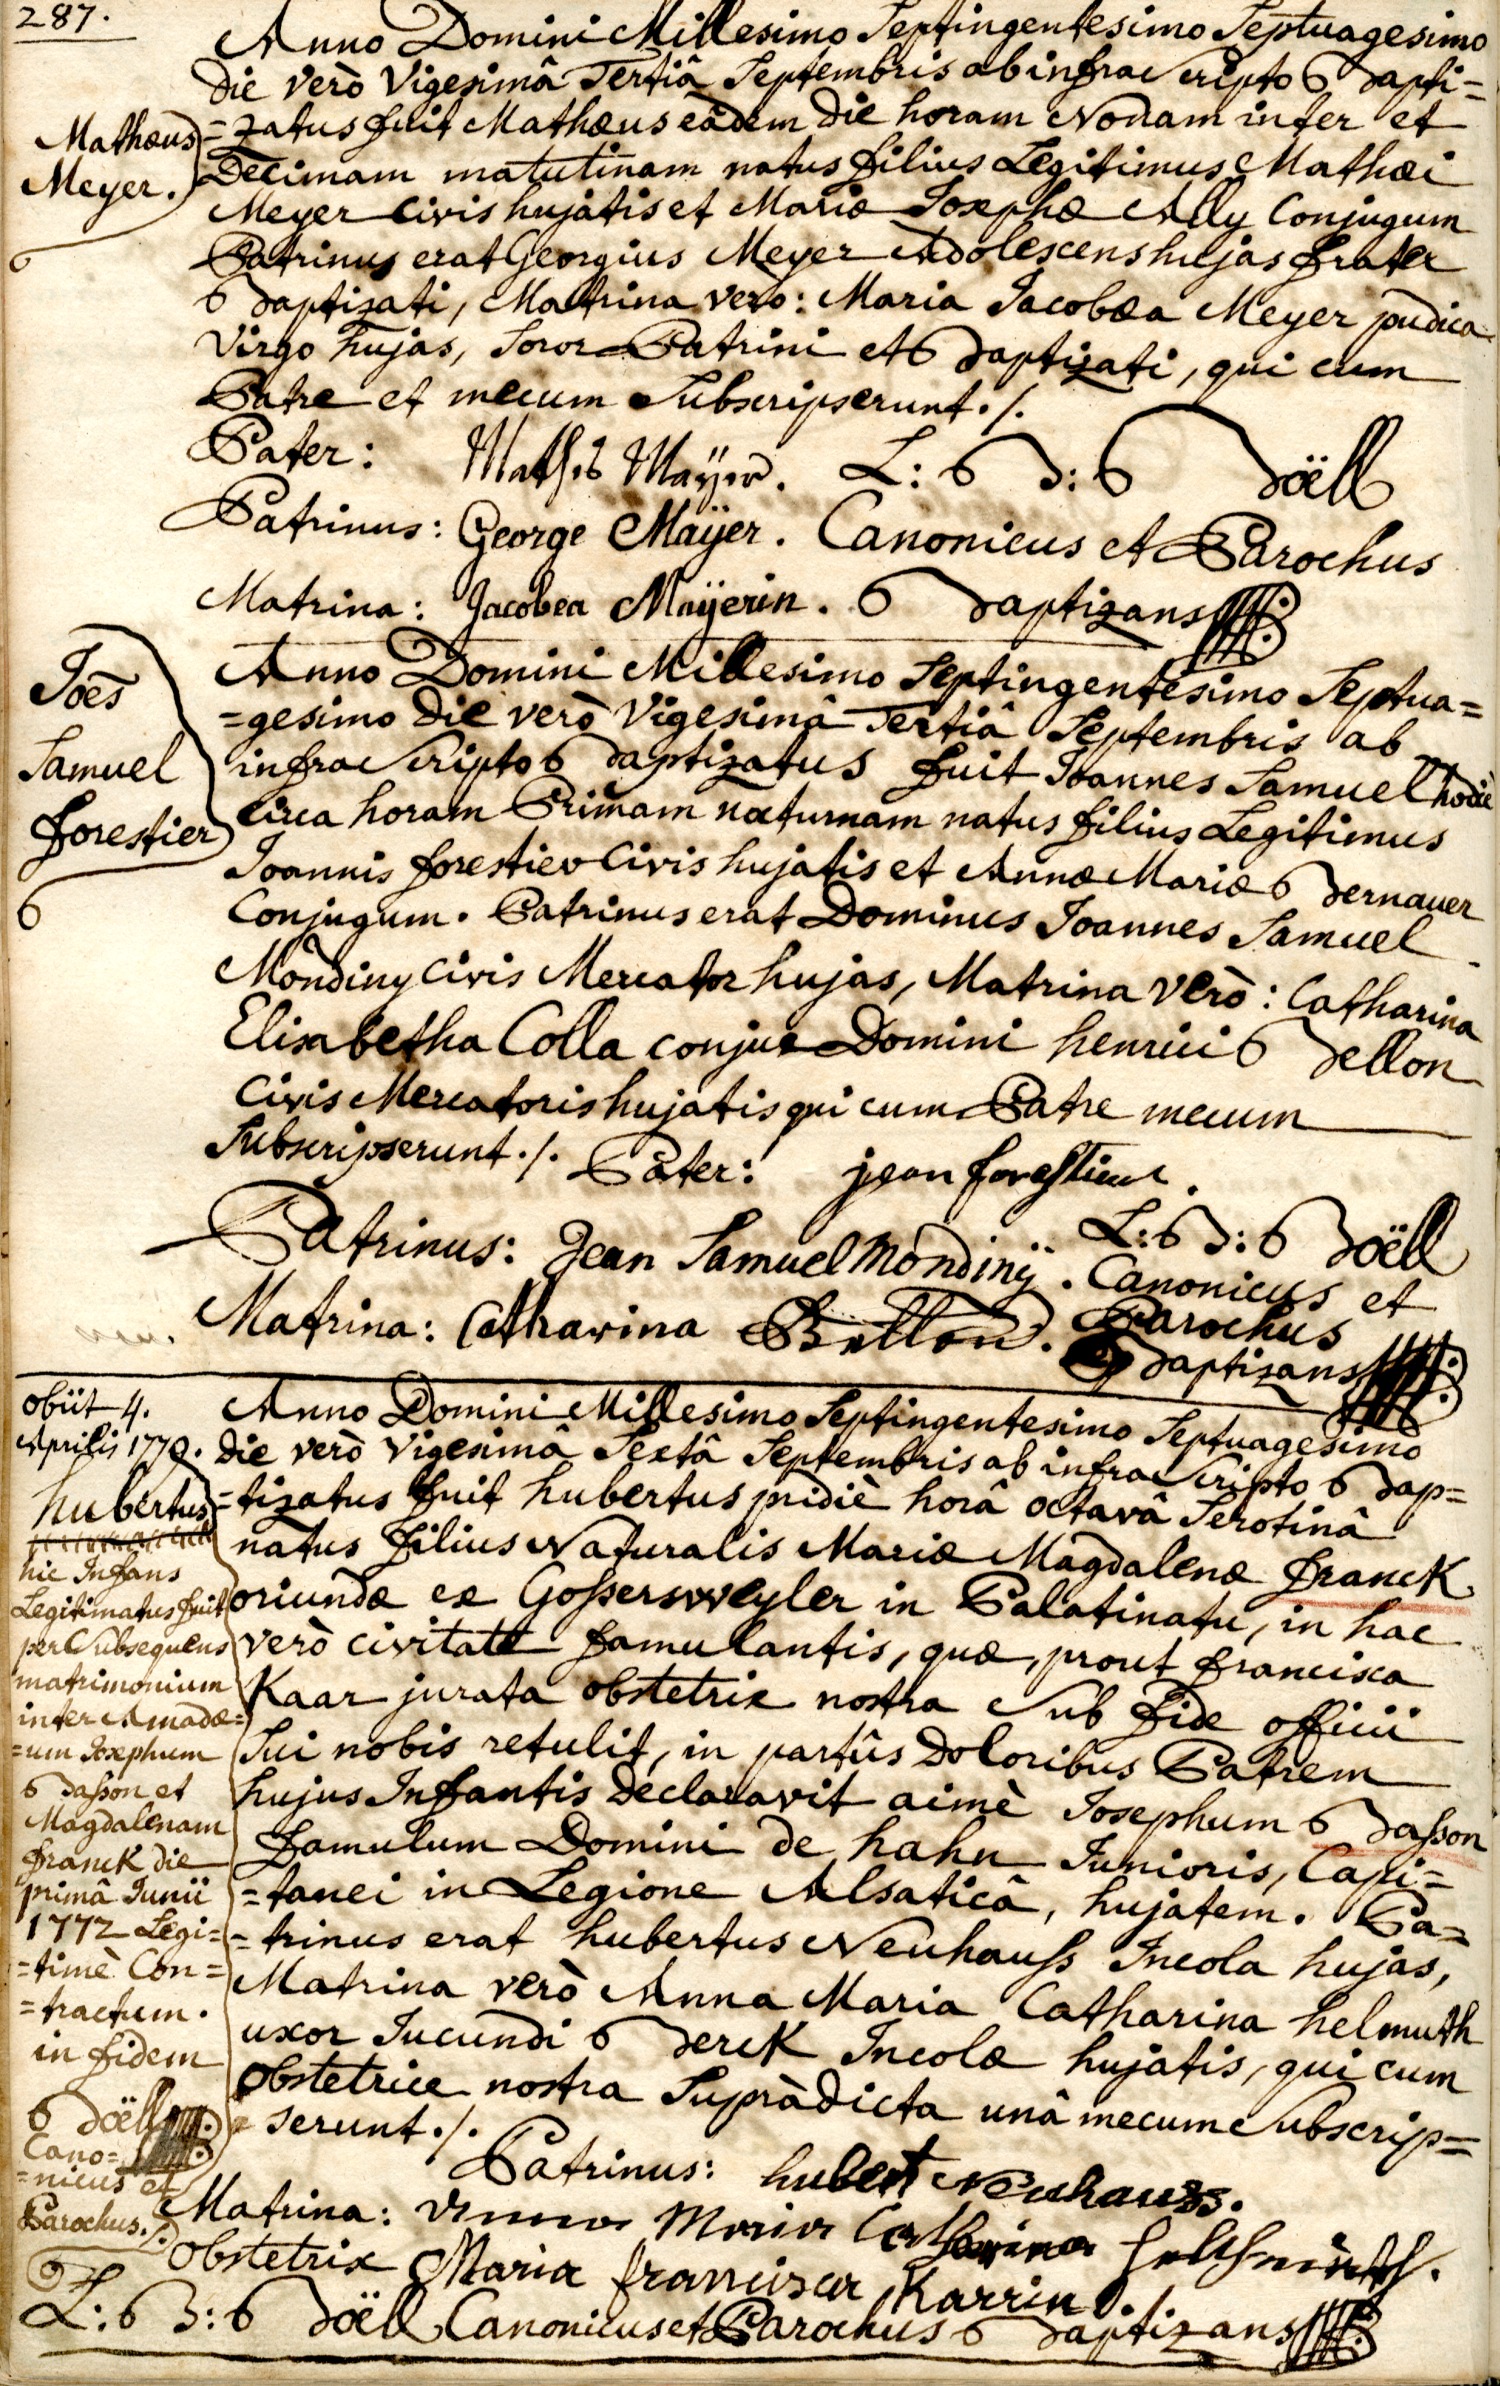 287.
Anno Domini Millesimo Septingentesimo Septuagesimo
die verò Vigesimâ Tertiâ Septembris ab infra Scripto Bapti=
=zatus fuit Mathæus eâdem die horam Nonam inter et
Decimam matutinam natus filius Legitimus Mathæi
Meyer Civis hujatis et Mariæ Josephæ Ally Conjugum
Patrinus erat Georgius Meyer Adolescens hujas frater
Baptizati, Matrina vero: Maria Jacobæa Meyer pudica
Virgo hujas, Soror Patrini et Baptizati, qui cum
Patre et mecum Subscripserunt ./.
Mathæus
Meyer.
Pater: Mathis Maÿer. L: B: Boëll
Patrinus: George Maÿer. Canonicus et Parochus
Matrina: Jacobea Maÿerin. Baptizans
Joes
Samuel
forestier
Anno Domini Millesimo Septingentesimo Septua=
=gesimo die verò Vigesimâ Tertiâ Septembris ab
infra Scripto Baptizatus fuit Joannes Samuel hodie
circa horam Primam nocturnam natus filius Legitimus
Joannis forestier Civis hujatis et Annæ Mariæ Bernauer
Conjugum. Patrinus erat Dominus Joannes Samuel
Mondiny Civis Mercator hujas, Matrina verò: Catharina
Elisabetha Colla conjux Domini henrici Bellon
Civis Mercatoris hujatis qui cum Patre mecum
Subscripserunt ./. Pater: jean forestier.
Patrinus: Jean Samuel Mondinÿ. L: B: Boëll
Canonicus et
Matrina: Catharina Bellon. Parochus
Baptizans
obiit 4.
Aprilis 1770.
hubertus
hic Infans
Legitimatus fuit
per Subsequens
matrimonium
inter Amadæ=
=um Josephum
Basson et
Magdalenam
franck die
primâ Junii
1772 Legi=
=timè Con=
=tractum.
in fidem
Boëll
Cano=
=nicus et
Parochus./.
Anno Domini Millesimo Septingentesimo Septuagesimo
die verò Vigesimâ Sextâ Septembris ab infra Scripto Bap=
=tizatus fuit hubertus pridiè horâ octavâ Serotinâ
natus filius Naturalis Mariæ Magdalenæ franck
oriundæ ex Gosserswweyler in Palatinatu, in hac
verò civitate famulantis, quæ, prout francisca
Kaar jurata obstetrix nostra Sub fide officii
Sui nobis retulit, in partûs Doloribus Patrem
hujus Infantis declaravit aimè Josephum Basson
famulum Domini de hahn Junioris, Capi=
=tanei in Legione Alsaticâ, hujatem. Pa=
=trinus erat hubertus Neuhauss Incola hujas,
Matrina verò Anna Maria Catharina helmuth
uxor Jucundi Berck Incolæ hujatis, qui cum
obstetrice nostra Supràdicta unâ mecum Subscrip=
=serunt ./.
Patrinus: hubert Neuhauss.
Matrina: Anna Maria Catharina
obstetrix Maria francisca Karrin.
L: B: Boëll Canonicus et Parochus Baptizans